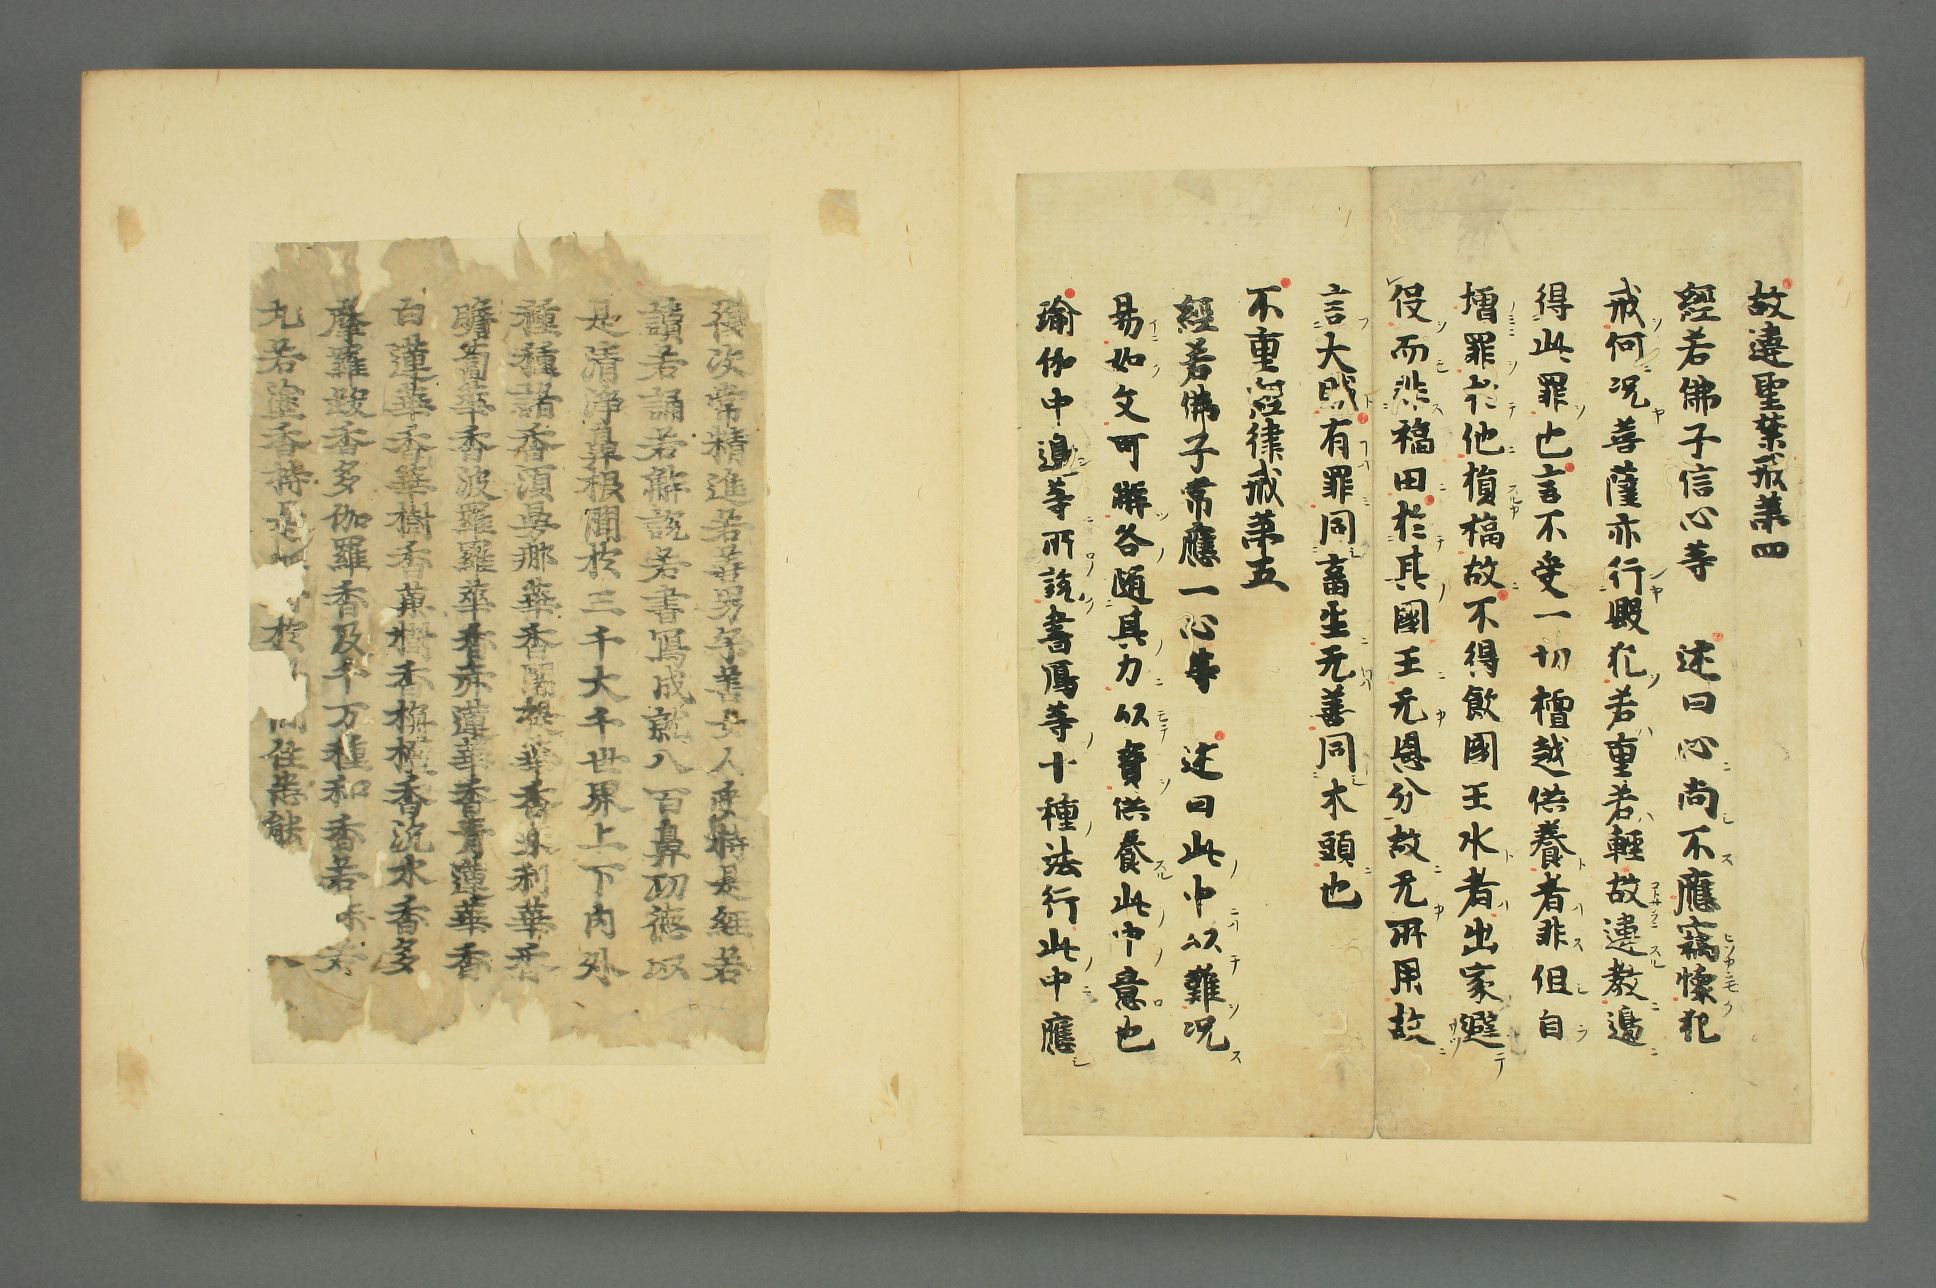 故違聖葉戒第四
經若佛子信心等　述曰心尚不應竊懐犯
戒何況菩薩亦行毀犯若重若輕故違教邊
得此罪也言不受一切檀越供養者非但自
増罪亦他損福故不得飲國王水者出家避
役而非福田於其國王无恩分故无所用故
言大賊有罪同畜生无善同木頭也
不重經律戒第五
經若佛子常應一心等　述曰此中以難況
易如文可解各随其力以賣供養此中意也
瑜伽中邊等所説書寫等十種法行此中應
復次常精進若善男子善女人受持是經若
讀若誦若解説若書寫成就八百鼻功徳以
是清淨鼻根聞於三千大千世界上下内外
種種諸香須曼那華香闍提華香末利華香
瞻蔔華香波羅羅華香赤蓮華香青蓮華香
白蓮華香華樹香菓樹香栴檀香沉水香多
摩羅跋香多伽羅香及千万種和香若末若
丸若塗香持是 於 間住悉能